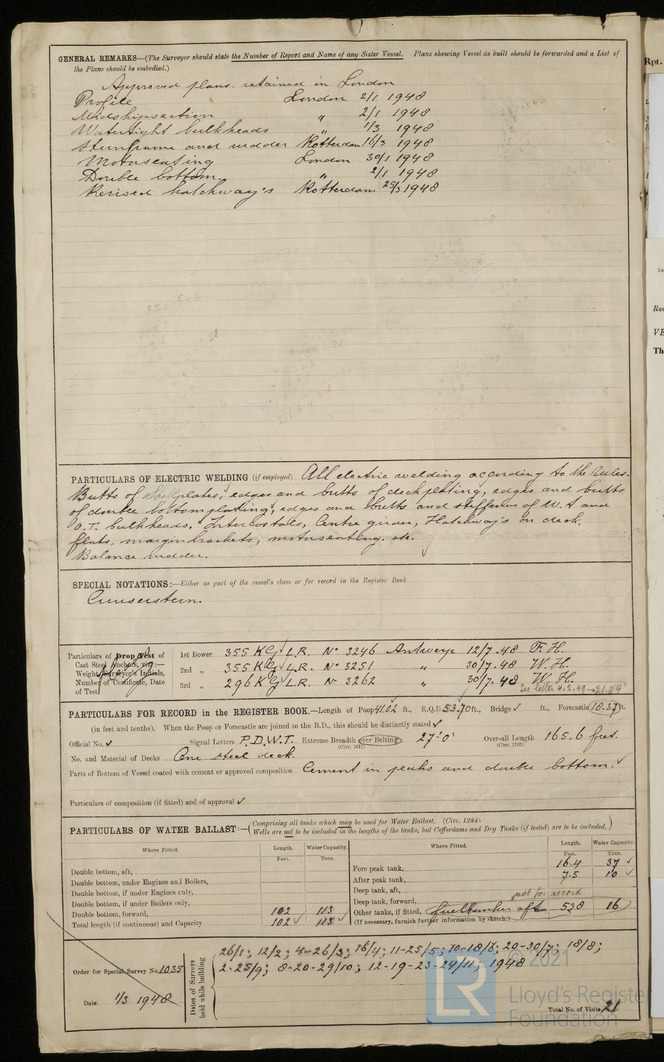 GENERAL REMARKS—(The Surveyor should state the Number of Report and Name of any Sister Vessel. Plans showing Vessel as built should be forwarded and a List of
the Plans should be embodied.)
Approved plans. retained in London
Profile London 2/1 1948
Midshipsection " 2/1 1948
Watertight bulkheads " 1/3 1948
Sternframe and rudder Rotterdam 16/3 1948
Motorseating London 30/1 1948
Double bottom " 2/1 1948
Revised hatchway's Rotterdam 25/3 1948
PARTICULARS OF ELECTRIC WELDING (if employed) All electric welding according to the rules.
Butts of shellplates, edges and butts of deckplating, edges and butts
of double bottomplating, edges and butts and stiffeners of W.T. and
O.T. bulkheads. Intercostals, Centre girder, Hatchway's on deck,
flats, margin brackets, motorseating. etc.
Balance rudder.
SPECIAL NOTATIONS:—Either as part of the vessel's class or for record in the Register Book
Cruiserstern.
Particulars of Drop Test of
Cast Steel Anchors, viz:—
Weight, Surveyor's Initials,
Number of Certificate, Date
of Test
1st Bower 355 KG L.R. No 3246 Antwerp 12/7.48 F.H.
2nd " 355 KG L.R. No 3251 " 30/7.48 W.H.
3rd " 296 KG L.R. No 3262 " 30/7.48 W.H.
PARTICULARS FOR RECORD in the REGISTER BOOK.—Length of Poop 41.02 ft., R.Q.D 53.70 ft., Bridge ft., Forecastle 18.37 ft.
(in feet and tenths). When the Poop or Forecastle are joined to the B.D., this should be distinctly stated
Official No. Signal Letters P.D.W.T. Extreme Breadth over Belting (Circ. 1611) 27'0" Over-all Length (Circ. 1703) 165.6 feet.
No. and Material of Decks One steel deck.
Parts of Bottom of Vessel coated with cement or approved composition Cement in peaks and double bottom.
Particulars of composition (if fitted) and of approval
PARTICULARS OF WATER BALLAST:—(Comprising all tanks which may be used for Water Ballast. (Circ. 1284)
Wells are not to be included in the lengths of the tanks, but Cofferdams and Dry Tanks (if tested) are to be included.)
Where Fitted. Length. Water Capacity. Where Fitted. Length. Water Capacity.
Feet. Tons. Feet. Tons.
Double bottom, aft, Fore peak tank, 16.4 37
Double bottom, under Engines and Boilers, After peak tank, 7.5 10
Double bottom, if under Engines only, Deep tank, aft,
Double bottom, if under Boilers only, Deep tank, forward, not for record
Double bottom, forward, 102 113 Other tanks, if fitted, fuelbunker aft 538 16
Total length (if continuous) and Capacity 102 113 (If necessary, furnish further information by sketch.)
Order for Special Survey No. 1035
Date 1/3 1948
Dates of Surveys held while building
26/1; 12/2; 4-26/3; 16/4; 11-25/5; 10-18/6; 20-30/7; 18/8;
2-25/9; 8-20-29/10; 12-19-23-24/11; 1948
Total No. of Visits 21
© 2021
LR
Lloyd's Register
Foundation
Rpt.